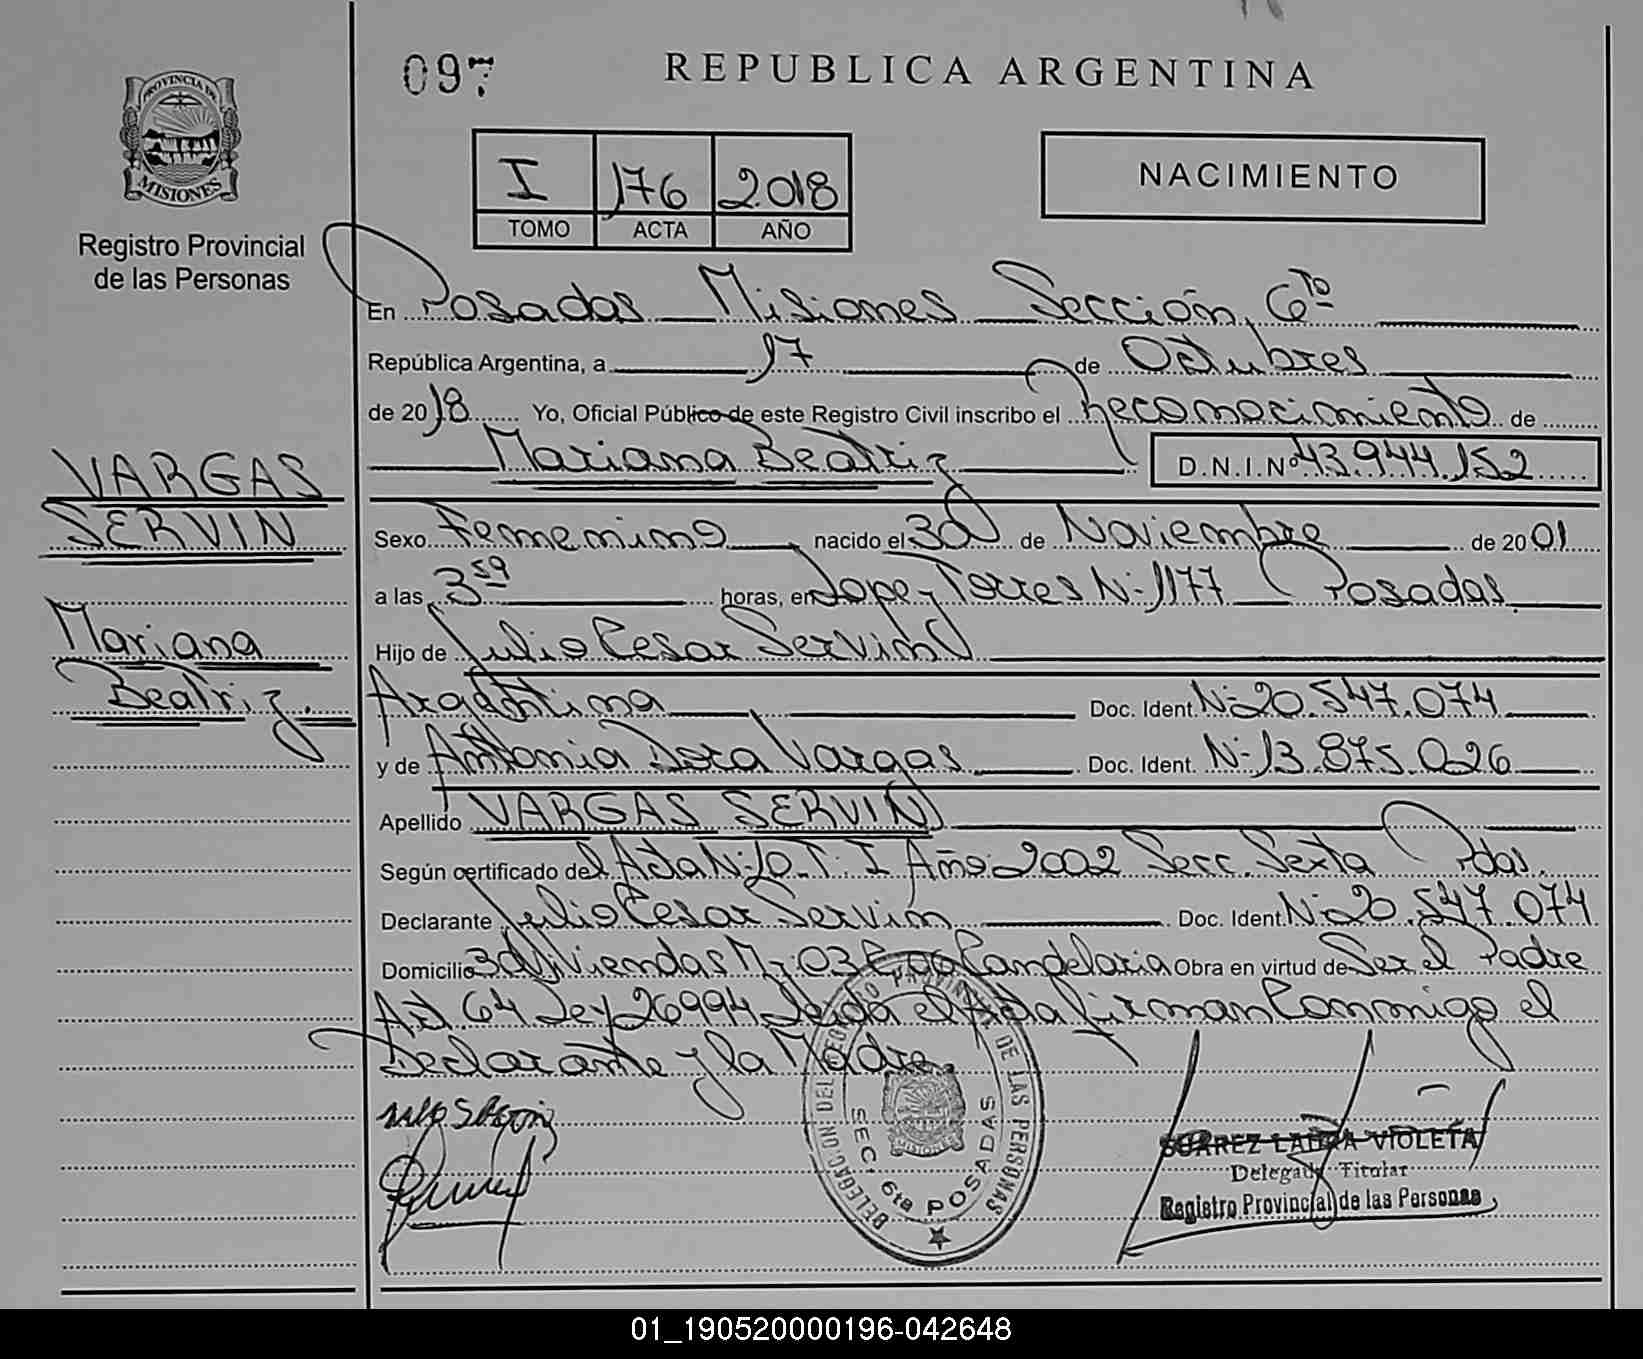 097
REPUBLICA ARGENTINA
PROVINCIA DE
MISIONES
Registro Provincial
de las Personas
I 176 2018
TOMO ACTA AÑO
NACIMIENTO
En Posadas Misiones Sección, 6to
República Argentina, a 17 de Octubres
de 2018 Yo, Oficial Público de este Registro Civil inscribo el Reconocimiento de
Mariana Beatriz D.N.I.Nº 43.944.152
VARGAS
SERVIN
Mariana
Beatriz.
Sexo Femenino nacido el 30 de Noviembre de 2001
a las 3 59 horas, en Lopez Torres Nº 1177 Posadas
Hijo de Julio Cesar Servin
Argentina Doc. Ident. Nº 20.547.074
y de Antonia Dora Vargas Doc. Ident. Nº 13.875.026
Apellido VARGAS SERVIN
Según certificado del Acta Nº 10. T. I Año 2002 Secc. Sexta Pdas.
Declarante Julio Cesar Servin Doc. Ident. Nº 20.547.074
Domicilio 30 Viviendas Mz 03 Candelaria Obra en virtud de Ser el Padre
Art. 64 Ley 26994 Leida el Acta firman Conmigo el
Declarante y la Madre.
DELEGAC. NO DEL REGISTRO PROVINCIAL DE LAS PERSONAS
SEC. 6ta POSADAS
SUAREZ LAURA VIOLETA
Delegada Titular
Registro Provincial de las Personas
01_190520000196-042648